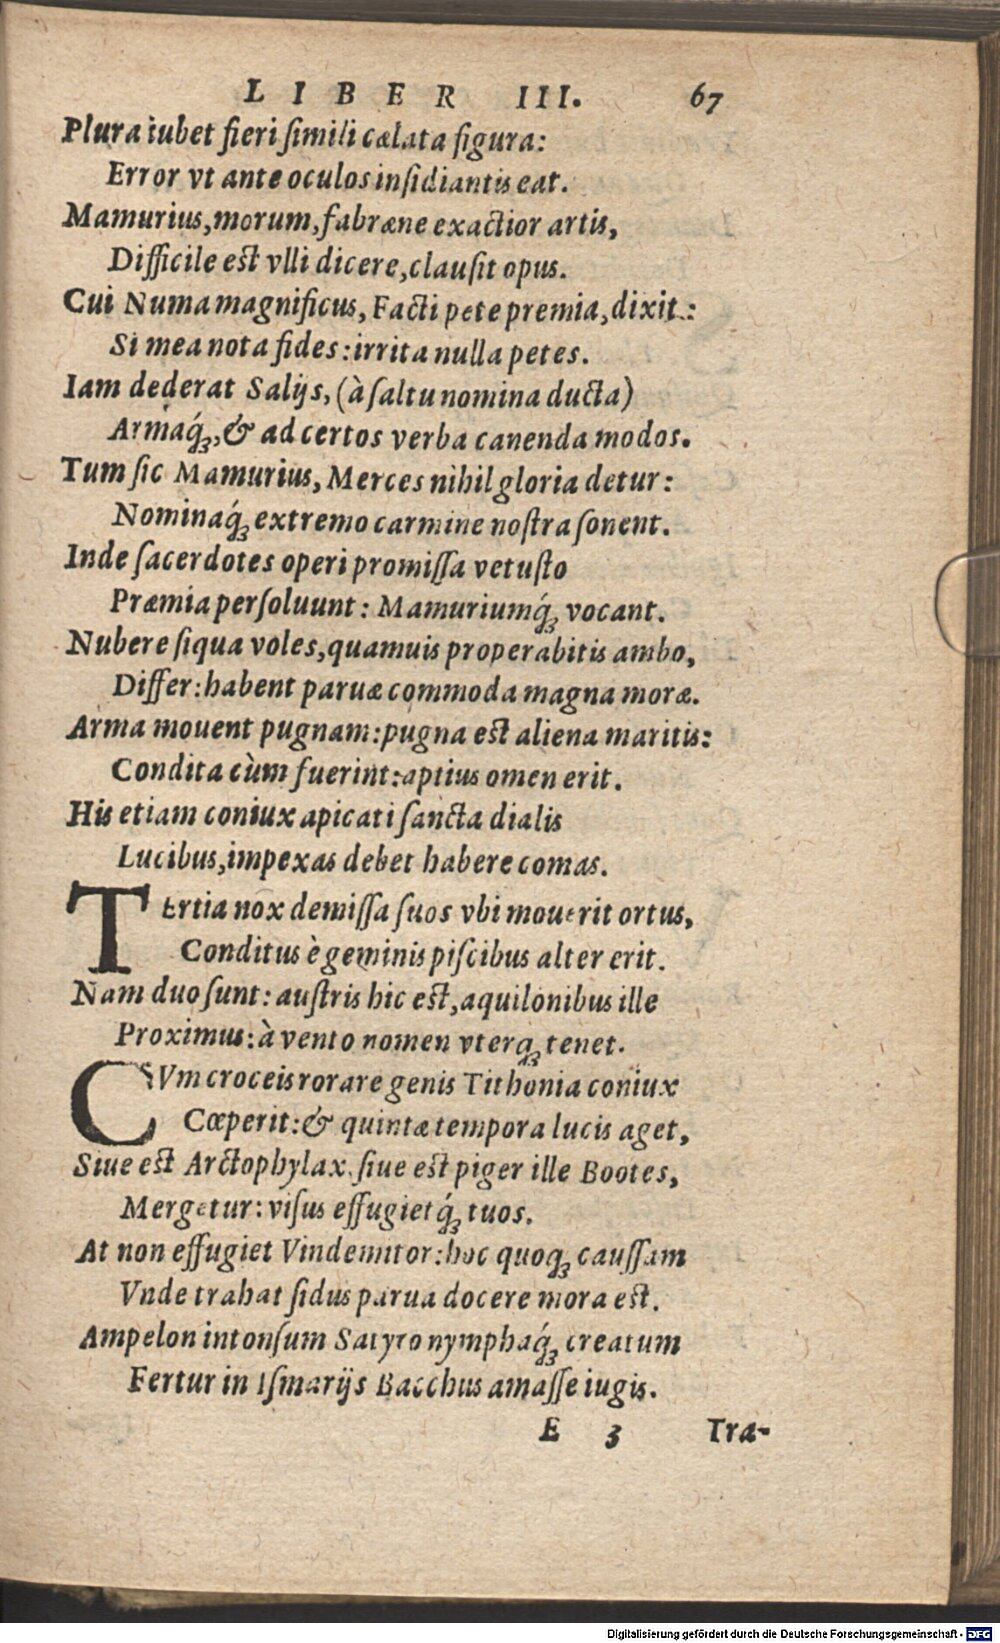 LIBER III. 67
Plura iubet fieri ſimili cælata figura:
Error vt ante oculos inſidiantis eat.
Mamurius, morum, fabræne exactior artis,
Difficile est vlli dicere, clauſit opus.
Cui Numa magnificus, Facti pete premia, dixit:
Si mea nota fides: irrita nulla petes.
Iam dederat Salijs, (à ſaltu nomina ducta)
Armaq́ꝫ, & ad certos verba canenda modos.
Tum ſic Mamurius, Merces nihil gloria detur:
Nominaq́ꝫ extremo carmine noſtra ſonent.
Inde ſacerdotes operi promiſſa vetuſto
Præmia perſoluunt: Mamuriumq́ꝫ vocant.
Nubere ſiqua voles, quamuis properabitis ambo,
Differ: habent paruæ commoda magna moræ.
Arma mouent pugnam: pugna est aliena maritis:
Condita cùm fuerint: aptius omen erit.
His etiam coniux apicati ſancta dialis
Lucibus, impexas debet habere comas.
TErtia nox demiſſa ſuos vbi mouerit ortus,
Conditus è geminis piſcibus alter erit.
Nam duo ſunt: auſtris hic est, aquilonibus ille
Proximus: à vento nomen vterqꝫ tenet.
CVm croceis rorare genis Tithonia coniux
Cœperit: & quintæ tempora lucis aget,
Siue est Arctophylax, ſiue est piger ille Bootes,
Mergetur: viſus effugietq́ꝫ tuos.
At non effugiet Vindemitor: hoc quoqꝫ cauſſam
Vnde trahat ſidus parua docere mora est.
Ampelon intonſum Satyro nymphaq́ꝫ creatum
Fertur in Iſmarijs Bacchus amaſſe iugis.
E 3 Tra-
Digitalisierung gefördert durch die Deutsche Forschungsgemeinschaft - DFG